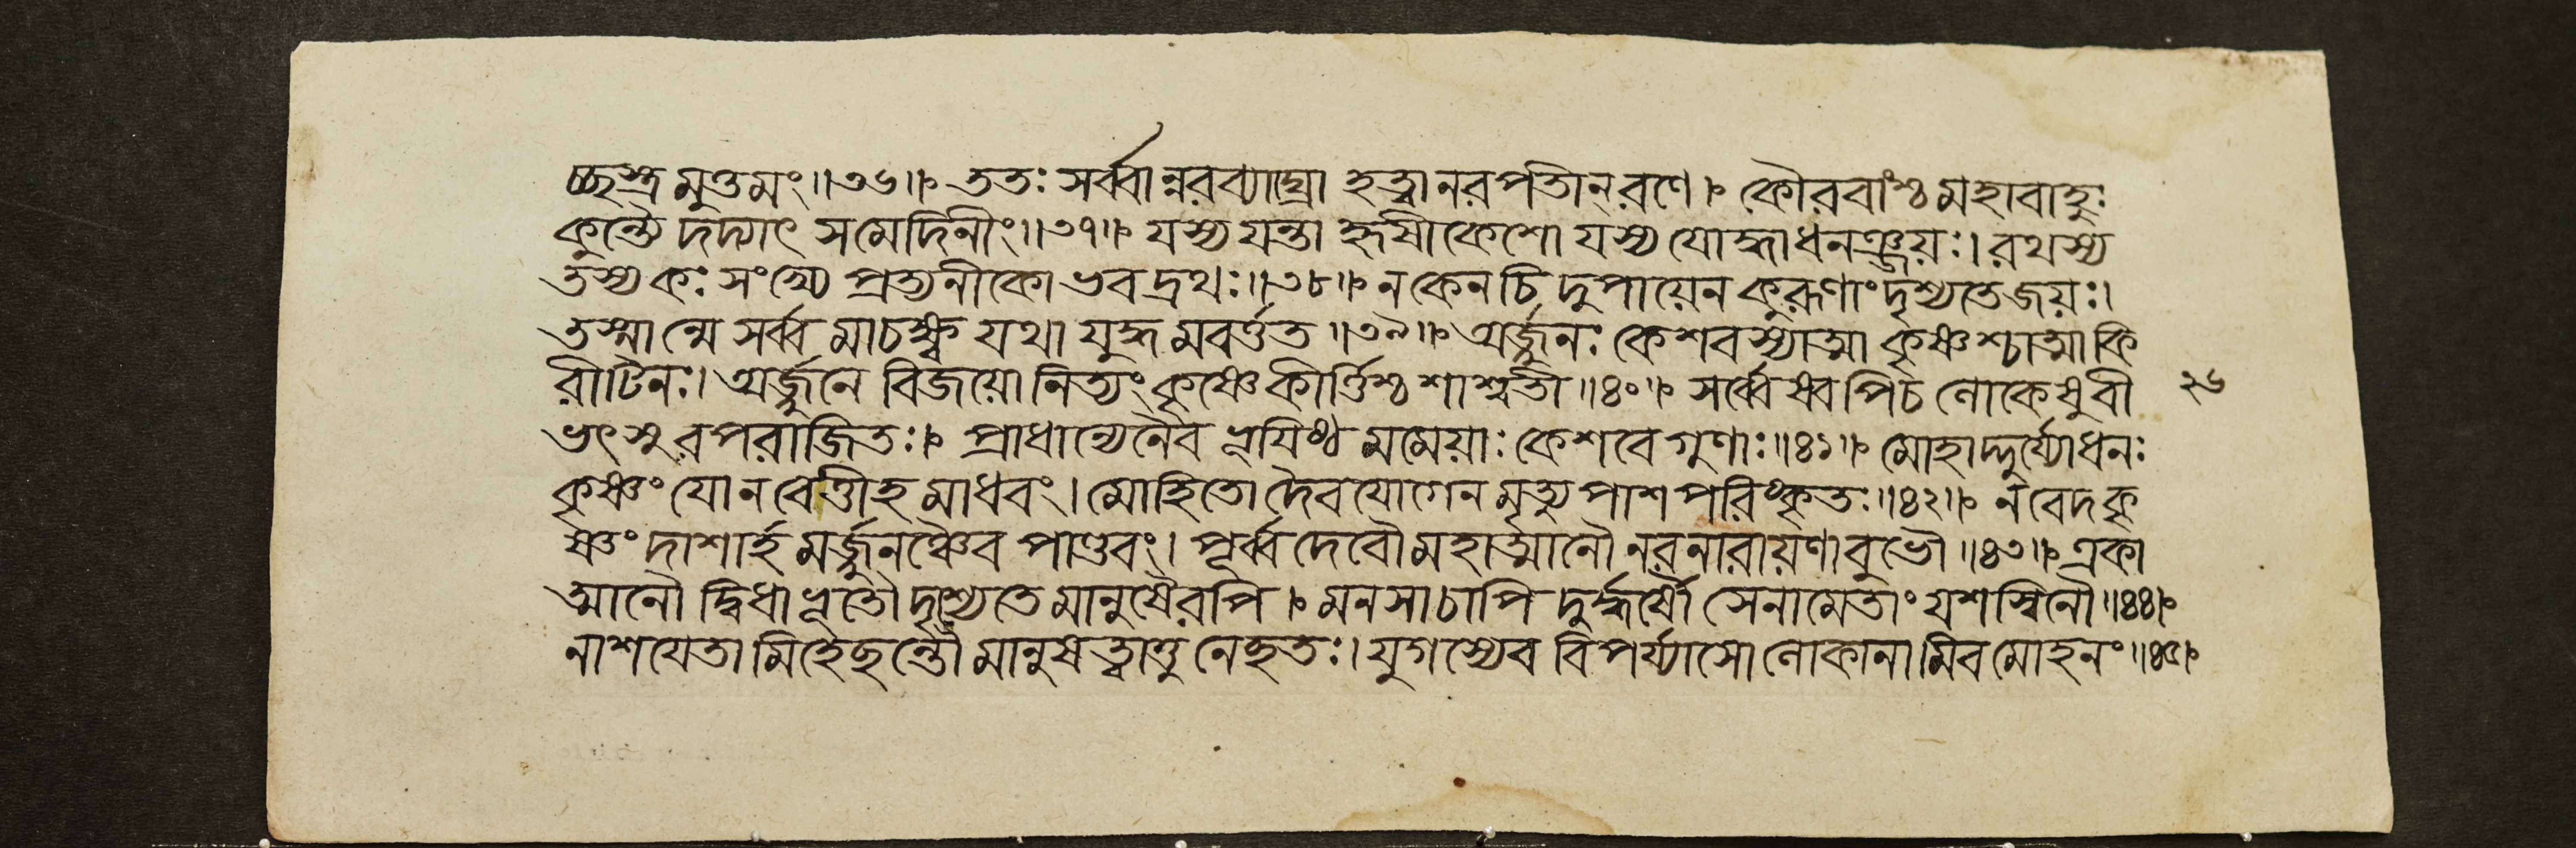 চ্ছস্ত্রমুত্তমং॥৩৬॥ ততঃ সর্ব্বান্নরব্যাঘ্রো হত্বা নরপতীন্ রণে। কৌরবাংশ্চ মহাবাহুঃ
কুন্ত্যৈ দদ্যাৎ সমেদিনীং॥৩৭॥ যস্য যন্তা হৃষীকেশো যস্য যোদ্ধা ধনঞ্জয়ঃ। রথস্য
তস্য কঃ সংখ্যে প্রত্যনীকো ভবদ্রথঃ॥৩৮॥ ন কেনচিদুপায়েন কুরূণাং দৃশ্যতে জয়ঃ।
তস্মান্মে সর্ব্বমাচক্ষ্ব যথা যুদ্ধমবর্ত্তত॥৩৯॥ অর্জ্জুনঃ কেশবস্যাত্মা কৃষ্ণশ্চাত্মা কি
রীটিনঃ। অর্জ্জুনে বিজয়ো নিত্যং কৃষ্ণে কীর্ত্তিশ্চ শাশ্বতী॥৪০॥ সর্ব্বেষ্বপি চ লোকেষু বী ২৬
ভৎসুরপরাজিতঃ। প্রাধান্যেনৈব ভূয়িষ্ঠমমেয়াঃ কেশবে গুণাঃ॥৪১॥ মোহাদ্দুর্য্যোধনঃ
কৃষ্ণং যো ন বেত্তীহ মাধবং। মোহিতো দৈবযোগেন মৃত্যুপাশপরিষ্কৃতঃ॥৪২॥ ন বেদ কৃ
ষ্ণং দাশার্হমর্জ্জুনঞ্চৈব পাণ্ডবং। পূর্ব্বদেবৌ মহাত্মানৌ নরনারায়ণাবুভৌ॥৪৩॥ একা
ত্মানৌ দ্বিধাভূতৌ দৃশ্যতে মানুষৈরপি। মনসাচাপি দুর্দ্ধর্ষৌ সেনামেতাং যশস্বিনৌ॥৪৪॥
নাশয়েতামিহেছন্তৌ মানুষত্বাত্তু নেহতঃ। যুগস্যেব বিপর্য্যাসো লোকানামিব মোহনং॥৪৫॥